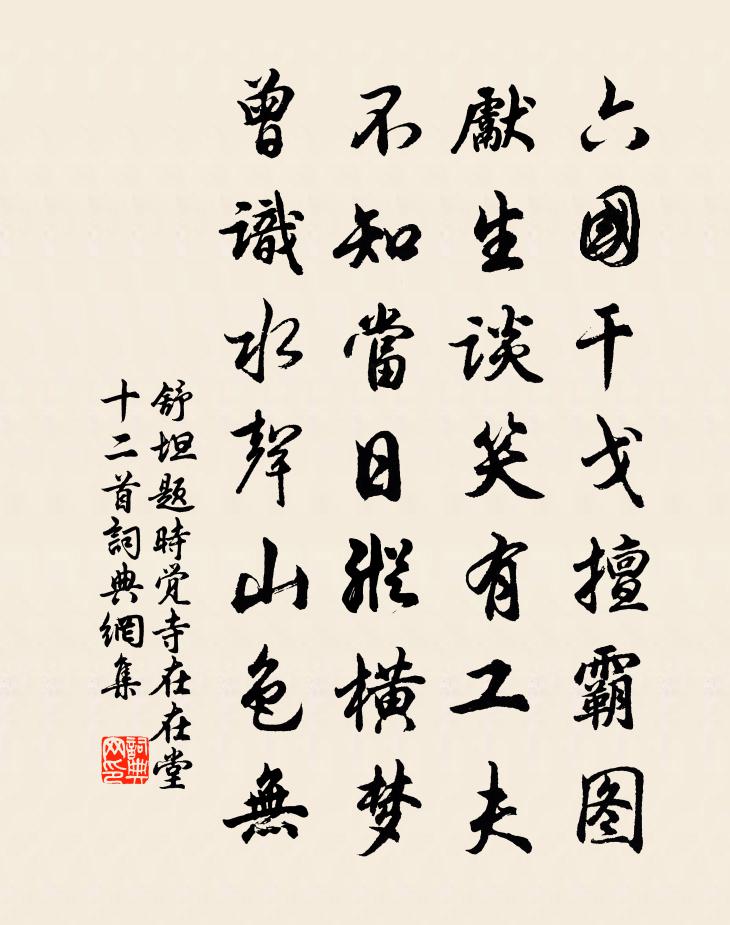 六國干戈擅霸图
獻生談笑有工夫
不知當日縱橫梦
曾識水聲山色無
舒坦题時觉寺在在堂
十二首詞典網集
詞典
网印